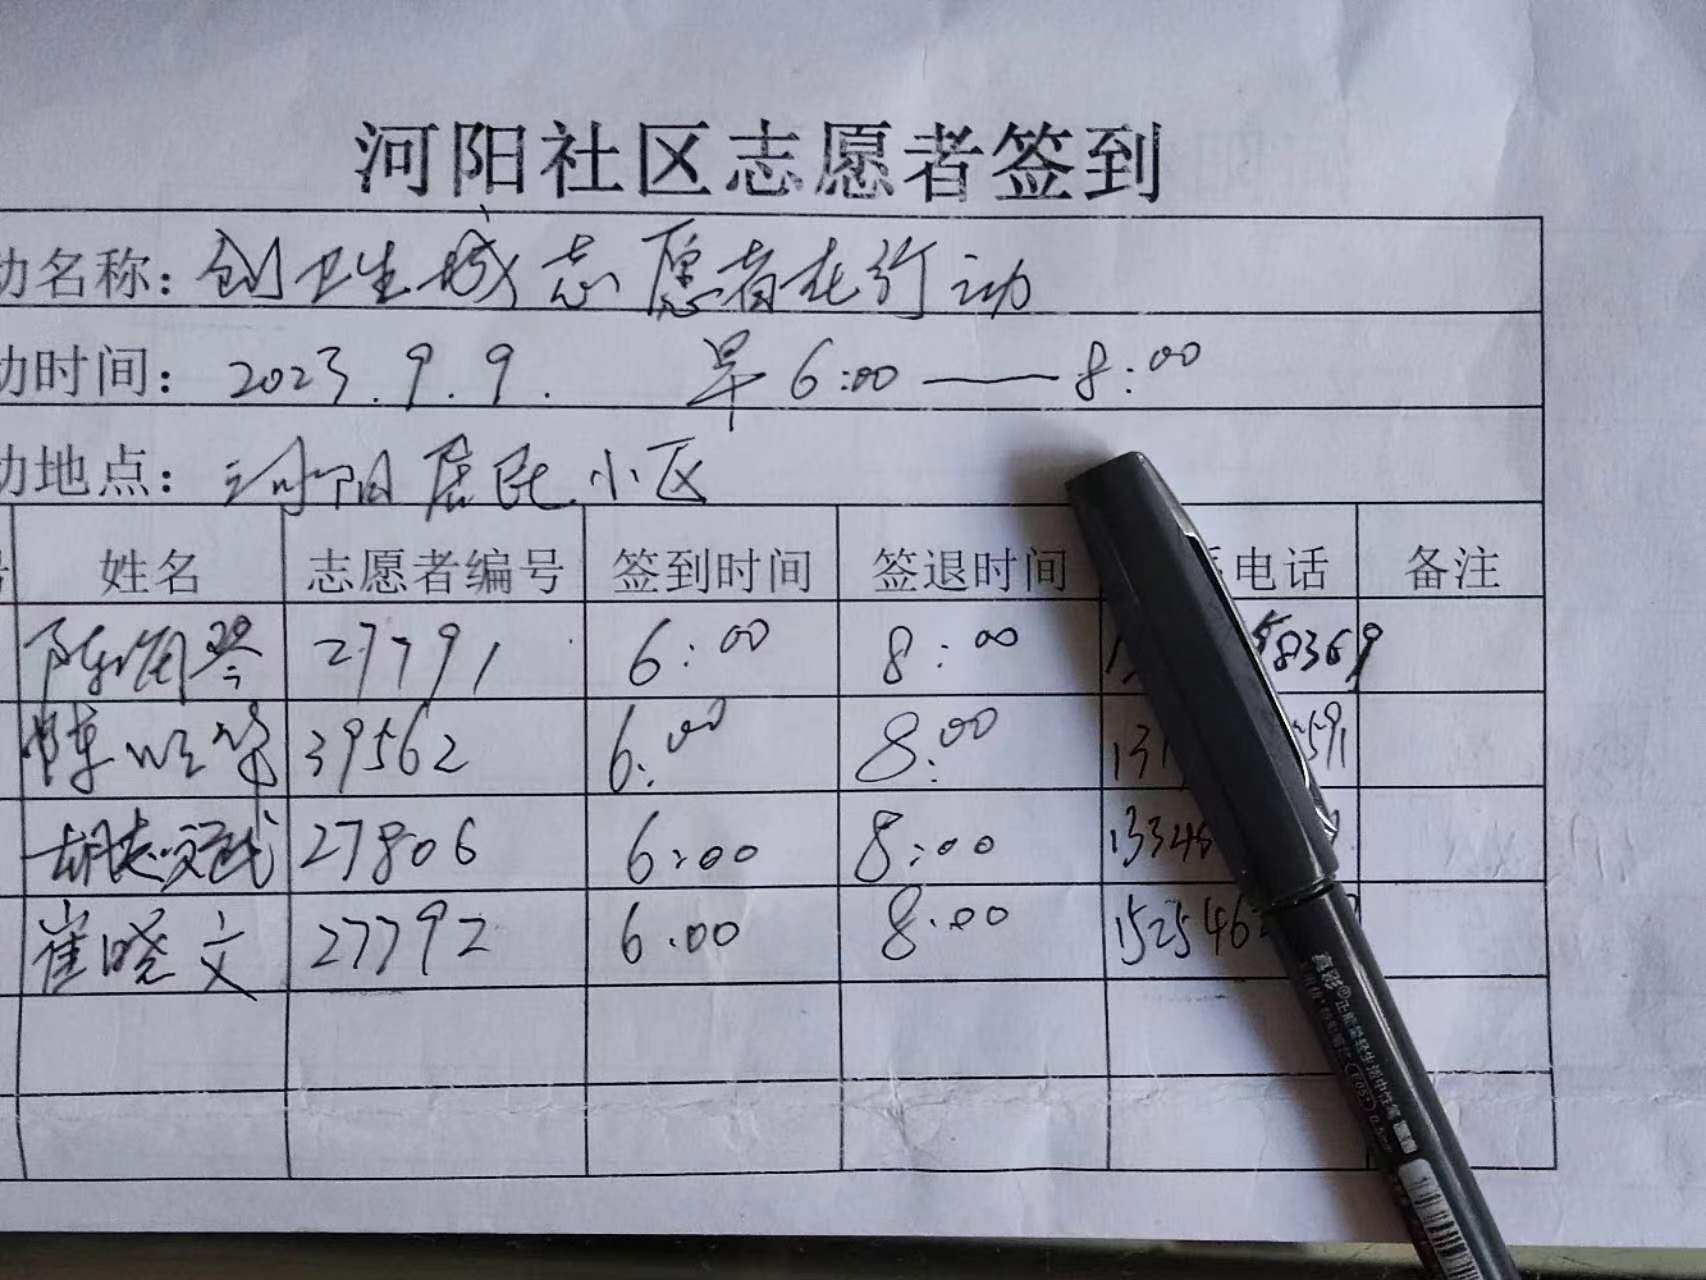 河阳社区志愿者签到
动名称：创卫生城志愿者在行动
动时间：2023.9.9. 早6:00——8:00
动地点：河阳居民小区
姓名 志愿者编号 签到时间 签退时间 电话 备注
27791 6:00 8:00 8369
陈 39562 6:00 8:00 131 591
胡志斌 27806 6:00 8:00 1334
崔晓文 27792 6.00 8.00 1525462
真彩®